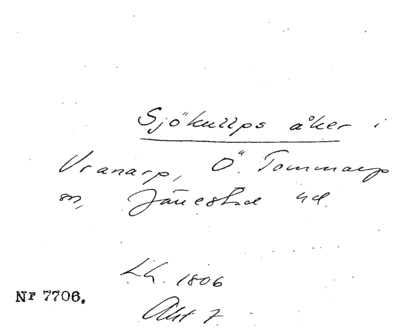 Sjökullps åker i
Vranarp, Ö. Tommarp
sn, Järrestad hd.
Lh. 1806
Akt 7
Nr 7706.